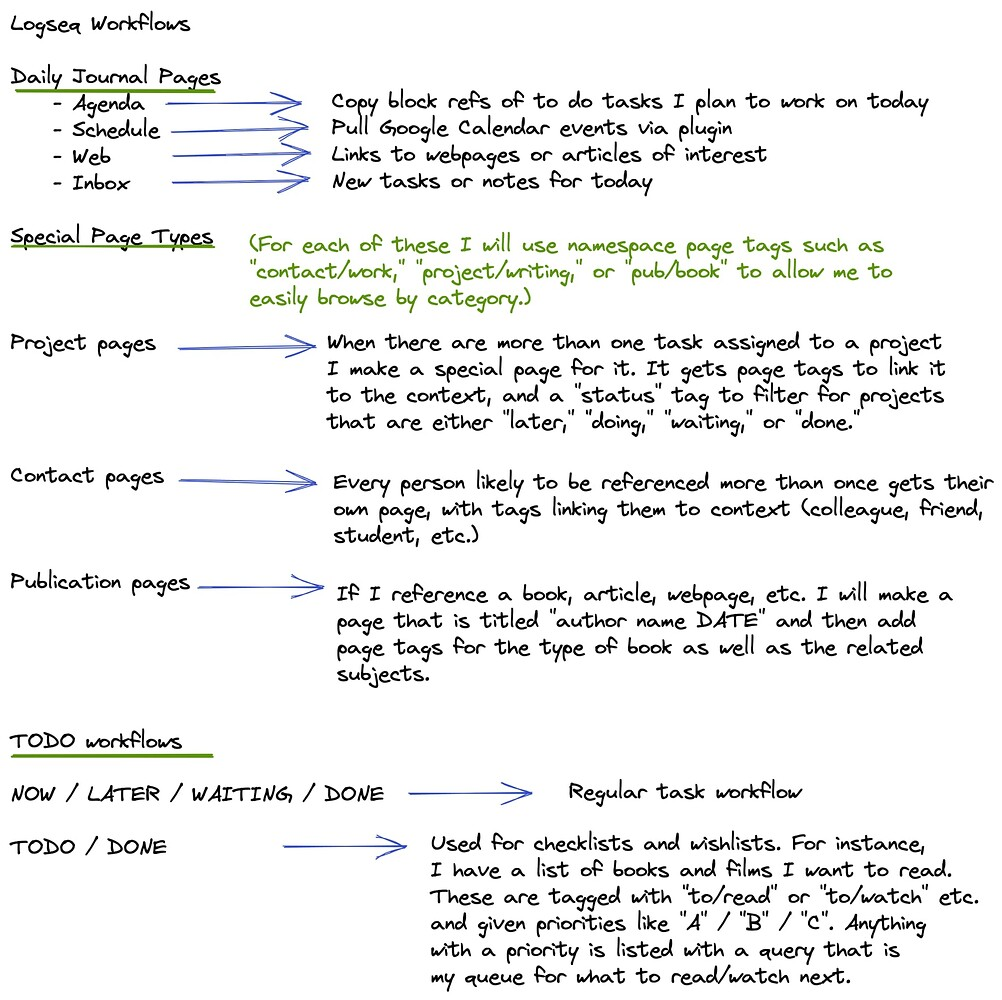 Logseq Workflows
Daily Journal Pages
- Agenda Copy block refs of to do tasks I plan to work on today
- Schedule Pull Google Calendar events via plugin
- Web Links to webpages or articles of interest
- Inbox New tasks or notes for today
Special Page Types
(For each of these I will use namespace page tags such as
"contact/work," "project/writing," or "pub/book" to allow me to
easily browse by category.)
Project pages When there are more than one task assigned to a project
I make a special page for it. It gets page tags to link it
to the context, and a "status" tag to filter for projects
that are either "later," "doing," "waiting," or "done."
Contact pages Every person likely to be referenced more than once gets their
own page, with tags linking them to context (colleague, friend,
student, etc.)
Publication pages If I reference a book, article, webpage, etc. I will make a
page that is titled "author name DATE" and then add
page tags for the type of book as well as the related
subjects.
TODO workflows
NOW / LATER / WAITING / DONE Regular task workflow
TODO / DONE Used for checklists and wishlists. For instance,
I have a list of books and films I want to read.
These are tagged with "to/read" or "to/watch" etc.
and given priorities like "A" / "B" / "C". Anything
with a priority is listed with a query that is
my queue for what to read/watch next.